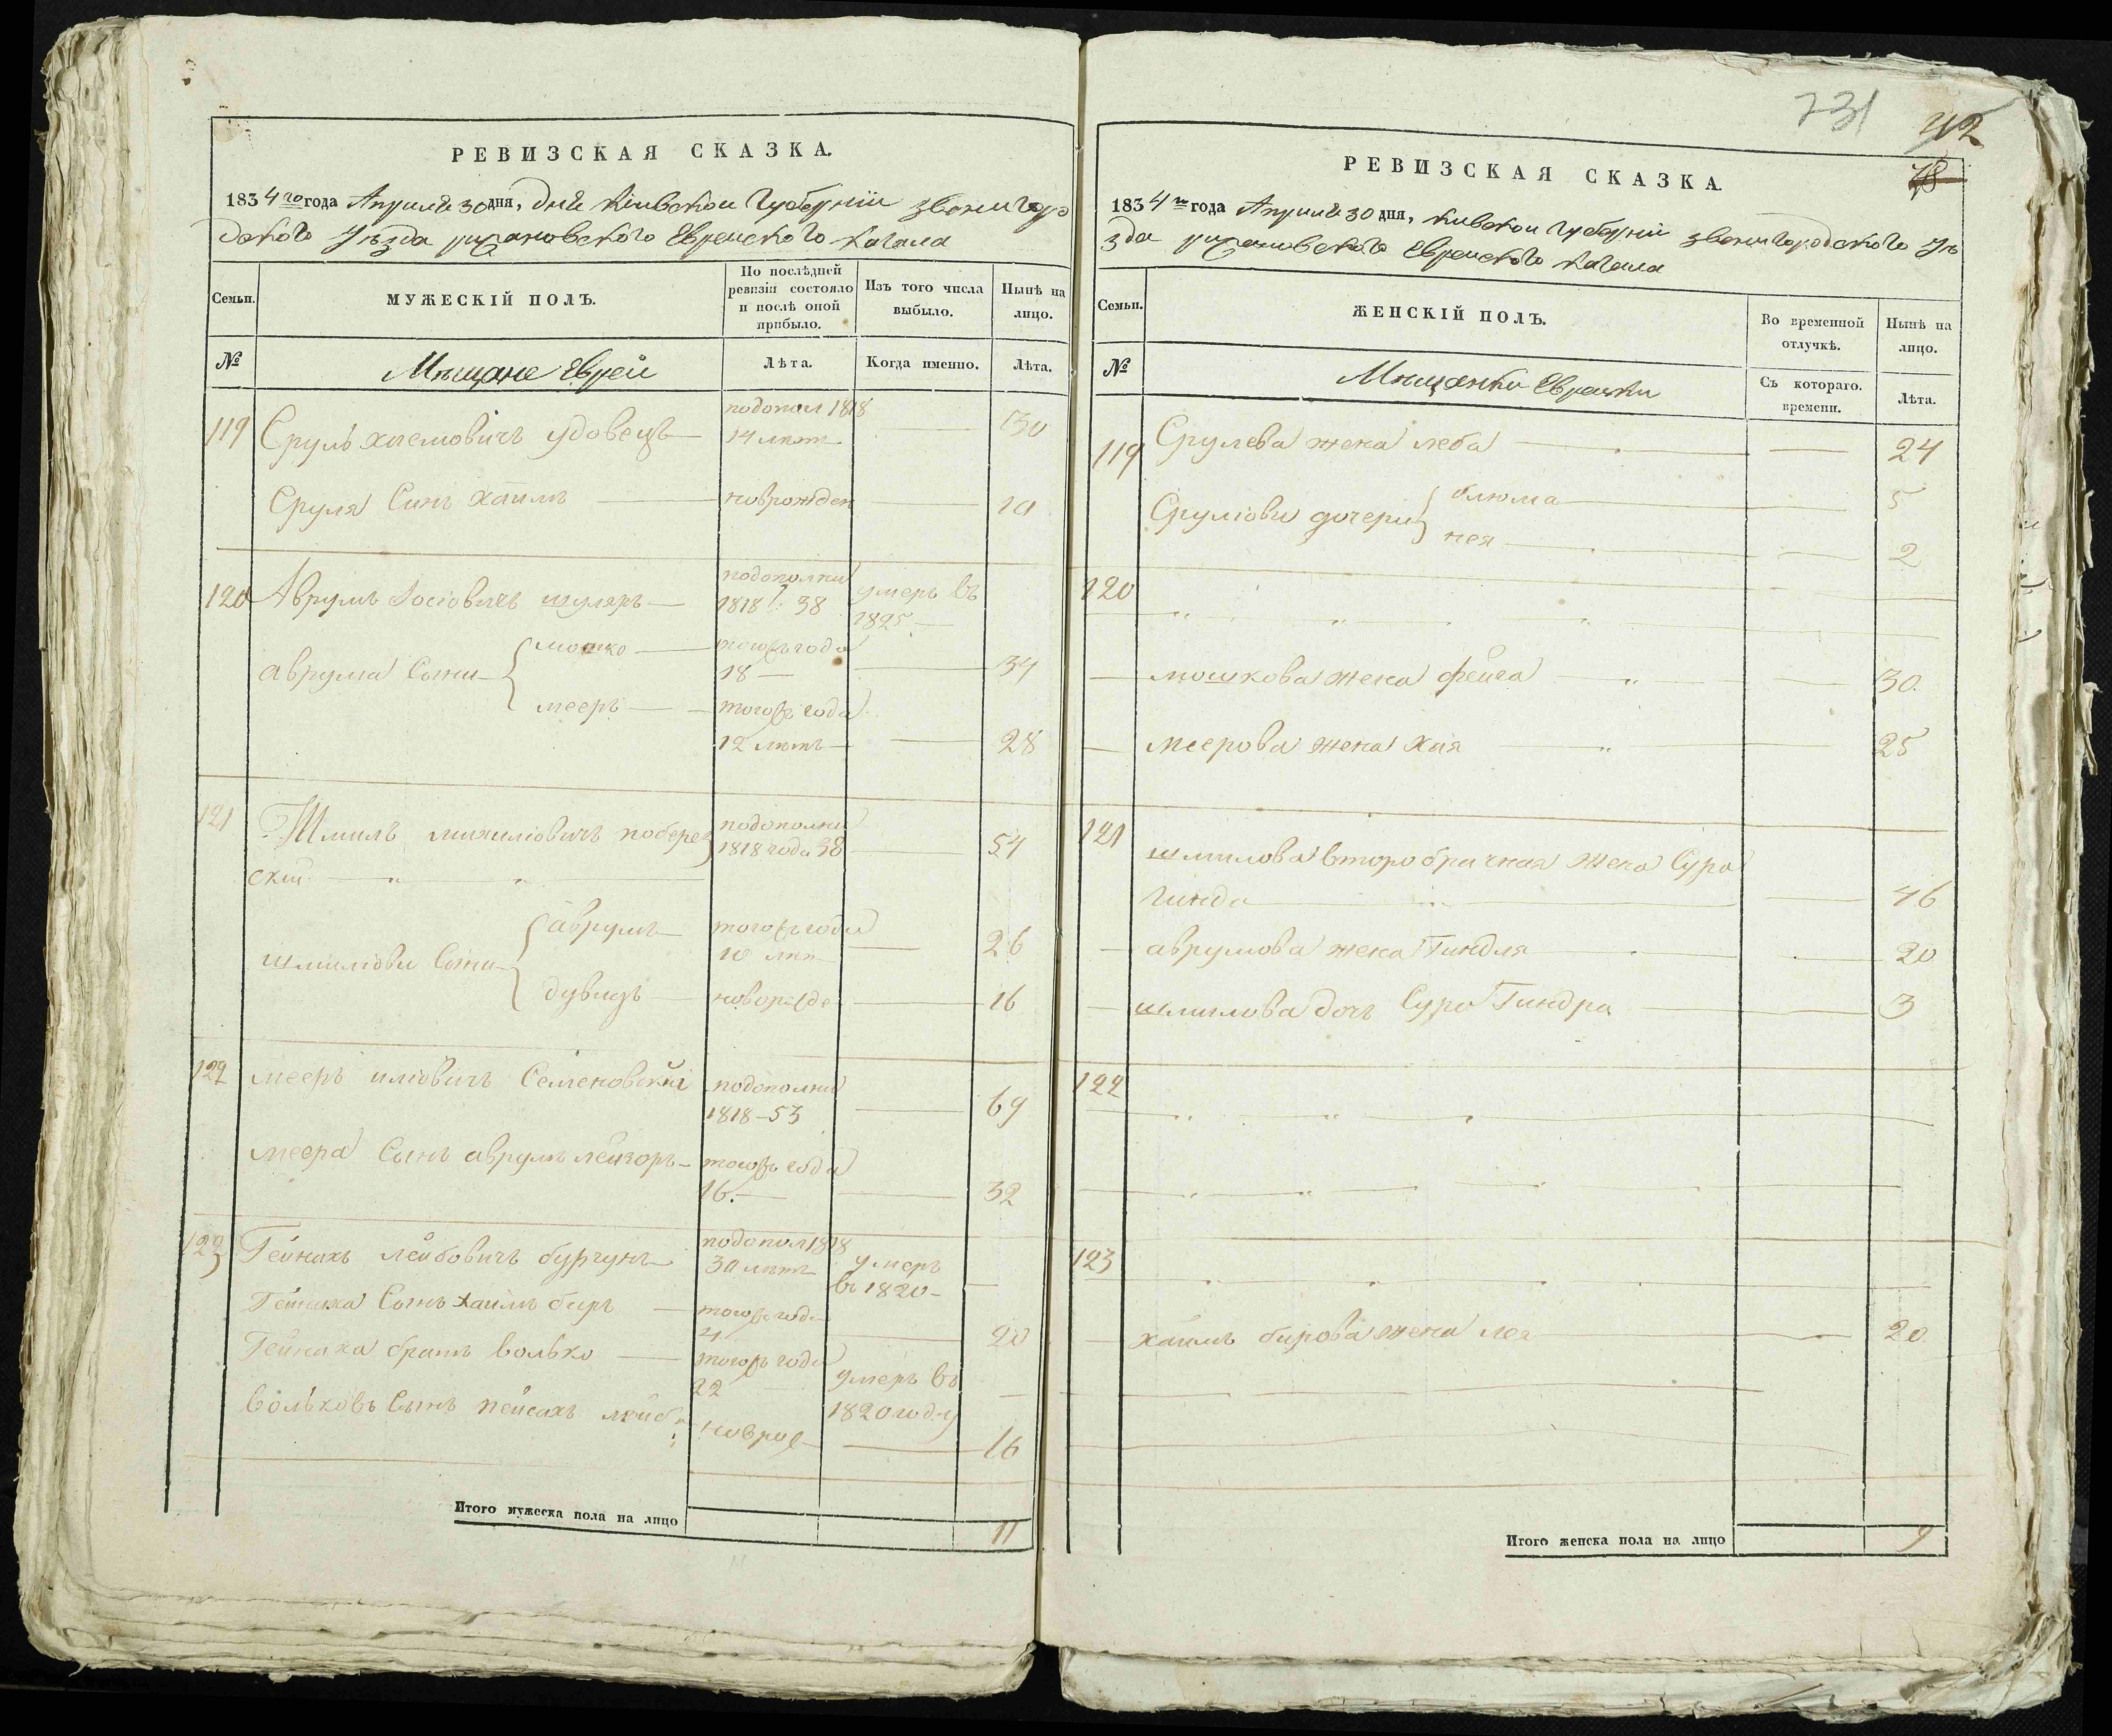 РЕВИЗСКАЯ СКАЗКА.
1834го года Априля 30 дня, Кіевской Губерніи Звенигоро
дского Уѣзда Еврейского Кагала
Семьи.
МУЖЕСКІЙ ПОЛЪ.
По послѣдней ревизіи состояло и послѣ оной прибыло.
Изъ того числа выбыло.
Нынѣ на лицо.
№
Мещане Евреи
Лѣта.
Когда именно.
Лѣта.
119 Сруль Хаемовичъ удовецъ подопол 1818 14 лѣт 30
Сруля Синъ Хаимъ новрожден 10
120 Аврумъ Іосіовичъ шуляръ подополни 1818 г: 38 умеръ въ 1825
аврума Сыни { мошко тогожъ года 18 34
мееръ тогожъ года 12 лѣтъ 28
121 Шмиль михиліовичъ поберез подополни 1818 года 38 54
ский
шмиліови Сыни { аврумъ тогожъ года 10 лѣт 26
дувидъ 16
122 мееръ иліовичъ Семеновскій подополни 1818-53 69
меера Сынъ аврумъ лейзоръ тогожъ года 16. 32
123 Гейнахъ лейбовичъ бургунъ подопол 1818 30 лѣтъ умеръ въ 1820
Гейнаха Сынъ Хаимъ беръ тогожъ года 4 20
Гейнаха братъ волько тогожъ года 22 умеръ въ 1820 году
вольковъ Сынъ пейсахъ лейб 16
Итого мужеска пола на лицо 11
731
42
78
РЕВИЗСКАЯ СКАЗКА.
1834го года Априля 30 дня, Кивской Губерніи Звенигородского Уѣ
зда Еврейского Кагала
Семьи.
ЖЕНСКІЙ ПОЛЪ.
Во временной отлучкѣ.
Нынѣ на лицо.
№
Мещанки Еврейки
Съ котораго. времени.
Лѣта.
119 Срулева жена леба 24
Сруліови дочери { блюма 5
нея 2
120
мошкова жена фейга 30.
меерова жена Хая 25
121 шмилова второбрачная жена Сура
Гинда 46
аврумова жена Гиндля 20
шмилова дочь Сура Гиндра 3
122
123
хаимъ берова жена лея 20.
Итого женска пола на лицо 9